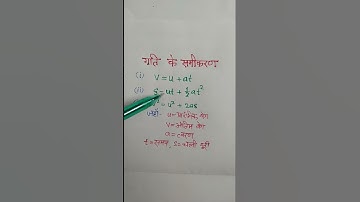 गति के समीकरण
(i) v = u + at
(ii) s = ut + ½ at²
v² = u² + 2as
जहाँ- u = प्रारंभिक वेग
v = अंतिम वेग
a = त्वरण
t = समय, s = चली दूरी